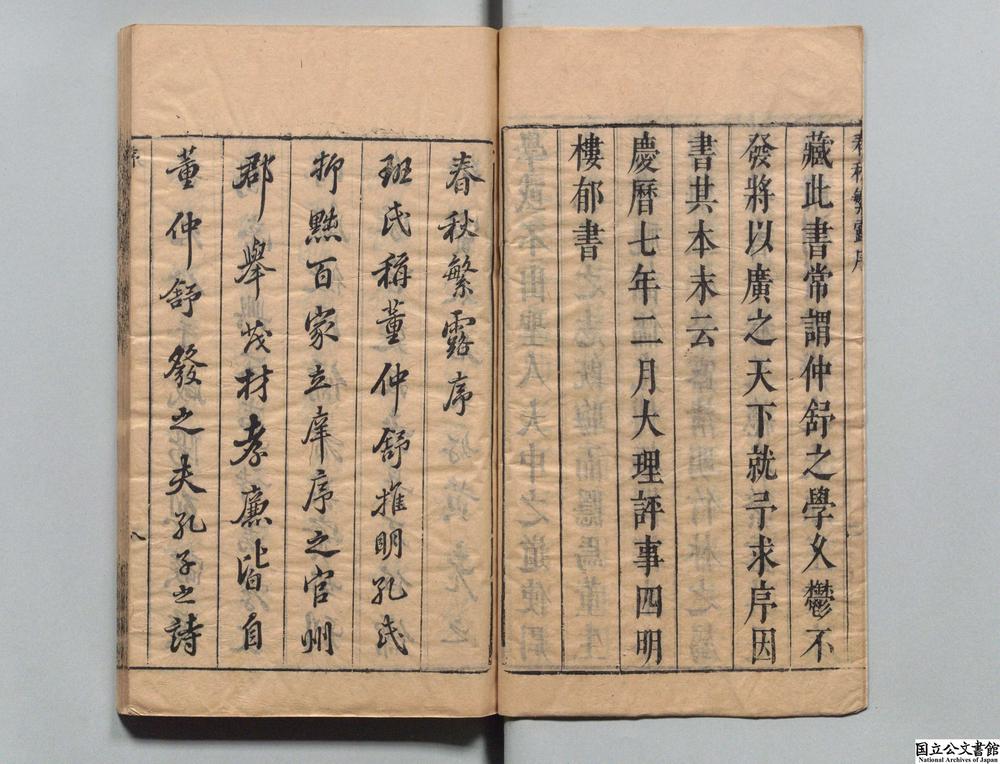 春秋繁露序
藏此書常謂仲舒之學久鬱不
發將以廣之天下就予求序因
書其本末云
慶曆七年二月大理評事四明
樓郁書
春秋繁露序
班氏稱董仲舒推明孔氏
抑黜百家立庠序之官州
郡舉茂材孝廉皆自
董仲舒發之夫孔子之詩
序
八
国立公文書館
National Archives of Japan